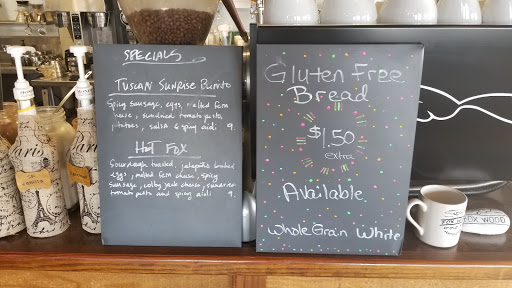 SPECIALS
Tuscan Sunrise Burrito
Spicy Sausage, eggs, melted Farm
house, sundried tomato pesto,
potatoes, salsa & spicy aioli 9.
Hot Fox
Sourdough toasted, jalapeño
eggs, melted farm cheese, spicy
Sausage, colby jack cheese, sundried
tomato pesto and spicy aioli 9.
Gluten Free
Bread
$1.50
extra
Available
Whole Grain White
Paris
Paris
FOX WOOD